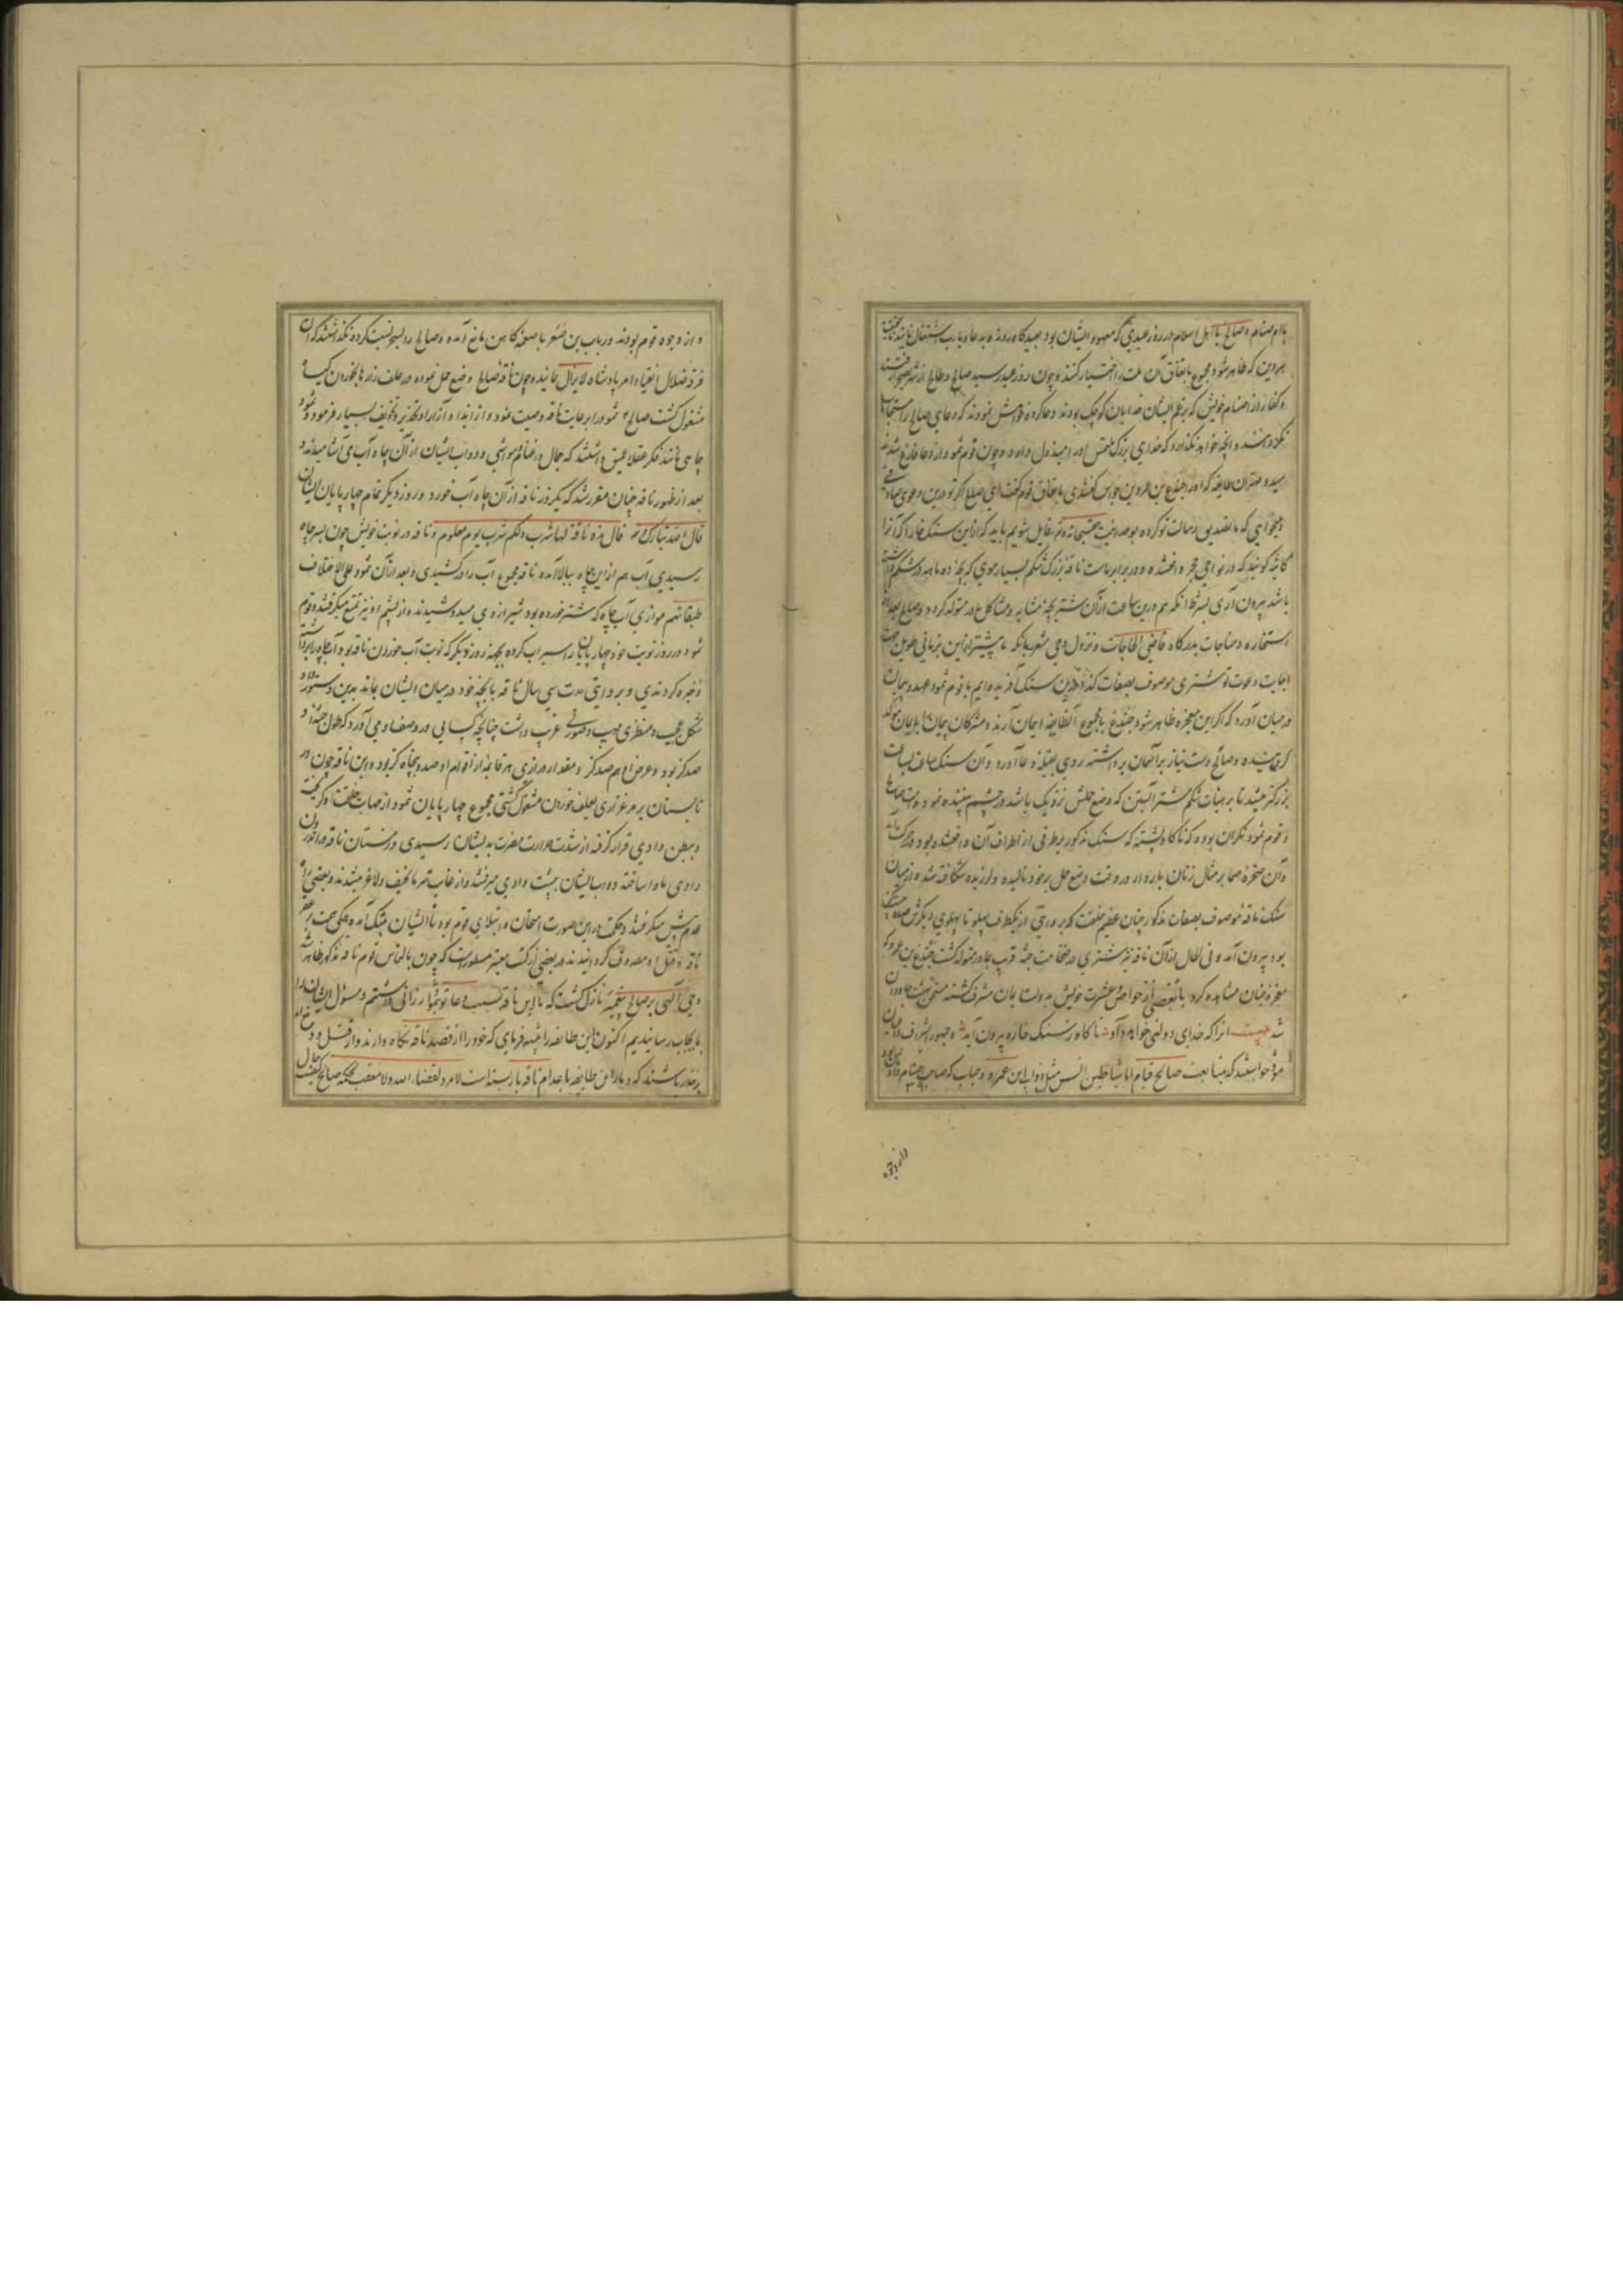 با اصنام و صالح با اهل اسلام در روز عیدی که معهود ایشان بود بعیدگاه روند و بدعا و یارب اشتغال نمایند حقیت
هر دین که ظاهر شود مجموع باتفاق آن ملت را اختیار کنند و چون روز عید رسید صالح و طالح از شهر بصحرا رفتند
و کفار از اصنام خویش که بزعم ایشان خدایان کوچک بودند دعا کرده خواهش نمودند که دعای صالح را مستجاب
نکردانند و آنچه خواهد نکذارد که خدای بزرک ملتمس او را مبذول دارد و چون قوم ثمود از دعا فارغ شدند
سید و مهتر آن طایفه که او را جندع بن عمرو بن جواس گفتندی باتفاق قوم گفت ای صالح اگر تو درین دعوی صادقی
و میخواهی که ما تصدیق رسالت تو کرده بوحدانیت حق سبحانه و تعالی قایل شویم باید که از این سنک خارا که آنرا
کاثبه گویند که در نواحی حجره افتاده و در برابر ماست ناقه بزرک شکم بسیار موی که بچه ده ماهه در شکم داشته
باشد بیرون آری بشرط آنکه هم درین ساعت از آن شتر بچه مشابه و مشاکل مادر متولد کردد و صالح بعد از
استخاره و مناجات بدرگاه قاضی الحاجات و نزول وحی مشعر بانکه ما پیشتر از این بزمانی طویل جهت
اجابت دعوت تو شتری موصوف بصفات کذا درین سنک آفریده ایم با قوم ثمود عهد و پیمان
در میان آورد که اگر این معجزه ظاهر شود جندع با مجموع آن طایفه ایمان آرند و مشرکان پیمان را بایمان موکد
گردانیده و صالح دست نیاز بر آسمان برداشته روی بقبله دعا آورد و آن سنک ساعة لساعت
بزرکتر میشد تا بر هیات شکم شتر آبستن که وضع حملش نزدیک باشد در چشم بیننده نمود و دست صالح
و قوم ثمود نکران بودند که ناگاه پشته که سنک مذکور بر طرفی از اطراف آن واقع شده بود در حرکت آمد
و آن صخره صما بر مثال زنان باردار در وقت وضع حمل بر خود نالیده و لرزیده شکافته شد و از میان
سنک ناقه موصوف بصفات مذکور چنان عظیم خلقت که بروایتی از یکطرف پهلو تا پهلوی دیگرش صد و بیست گز
بود بیرون آمد و فی الحال از آن ناقه نیز شتری در ضخامت جثه قریب بمادر متولد کشت جندع بن عمرو که
معجزه چنان مشاهده کرد با بعضی از خواص و عشیرت خویش بدولت ایمان مشرف کشته مستحق بهشت جاودان
شد بیت آنرا که خدای دولتی خواهد داد ناگاه ز سنک خاره بیرون آید و جمهور اشراف و اعیان
ثمود خواستند که بمتابعت صالح قیام نمایند شیاطین انس مثل ذواب بن عمرو و حباب که صاحب اصنام
دارند بود
و از وجوه قوم بودند و رباب بن صعر با صعه کاهن مانع آمده و صالح را بسحر نسبت کرده نکذاشتند که آن
فرقه ضلال انقیاد امر پادشاه لایزال نمایند و چون ناقه صالح وضع حمل نموده در علف زار بخوردن گیاه
مشغول کشت صالح ثمود را برعایت ناقه وصیت نمود و از ایذا و آزار او تحذیر و تخویف بسیار فرمود و ثمود
چاهی مانند فکر عقلا عمیق داشتند که جمال و اغنام و مواشی و دواب ایشان از آن چاه آب می آشامیدند و
بعد از ظهور ناقه چنان مقرر شد که یکروز ناقه از آن چاه آب خورد و روز دیگر تمام چهارپایان ایشان
قال الله تبارک و تعالی قال هذه ناقة لها شرب و لکم شرب یوم معلوم و ناقه در نوبت خویش چون بسر چاه
رسیدی آب هم از این چاه ببالا آمده ناقه مجموع آب را درکشیدی و بعد از آن ثمود علی اختلاف
طبقاتهم موازی آب چاه که شتر خورده بود شیر از وی میدوشیدند و از پشم او نیز تمتع میگرفتند و قوم
ثمود در روز نوبت خود چهارپایان را سیراب کرده بجهة روز دیگر که نوبت آب خوردن ناقه بود آب از چاه برداشته
ذخیره کردندی و بروایتی مدت سی سال ناقه با بچه خود در میان ایشان بماند بدین دستور و او
شکل عجیب و منظری مهیب و صورتی غریب داشت چنانچه کسایی در وصف او می آورد که طول جثه او
صد گز بود و عرض او هم صد گز و مقدار درازی هر قایمه از قوایم او صد و پنجاه گز بود و این ناقه چون در
تابستان بر مرغزاری بعلف خوردن مشغول گشتی مجموع چهارپایان ثمود از مهابت خلقت او گریخته
در بطن وادی قرار گرفته از شدت حرارت مضرت بدیشان رسیدی و زمستان ناقه در اندرون
وادی ماوا ساخته دواب ایشان به پشت وادی میرفتند و از غایت سرما نحیف و لاغر میشدند و بعضی راه
عدم پیش میگرفتند و حکمت در این صورت امتحان و ابتلای قوم بود تا ایشان بتنک آمده همکی همت بر عقر
ناقه و قتل او مصروف گردانیدند و در بعضی از کتب معتبر مسطور است که چون بالتماس قوم ناقه مذکور ظاهر شد
وحی الهی بر صالح پیغمبر نازل گشت که ما این ناقه بسبب دعا تو بثمود ارزانی داشتیم و مسئول ایشان را
بایجاب رسانیدیم اکنون این طایفه را تنبیه فرمای که خود را از قصد ناقه نگاه دارند و از قتل و ذبح او
بر حذر باشند که دمار این طایفه باعدام ناقه باز بسته است لا مرد لقضاء الله و لا معقب لحکمه صالح کیفیت حال